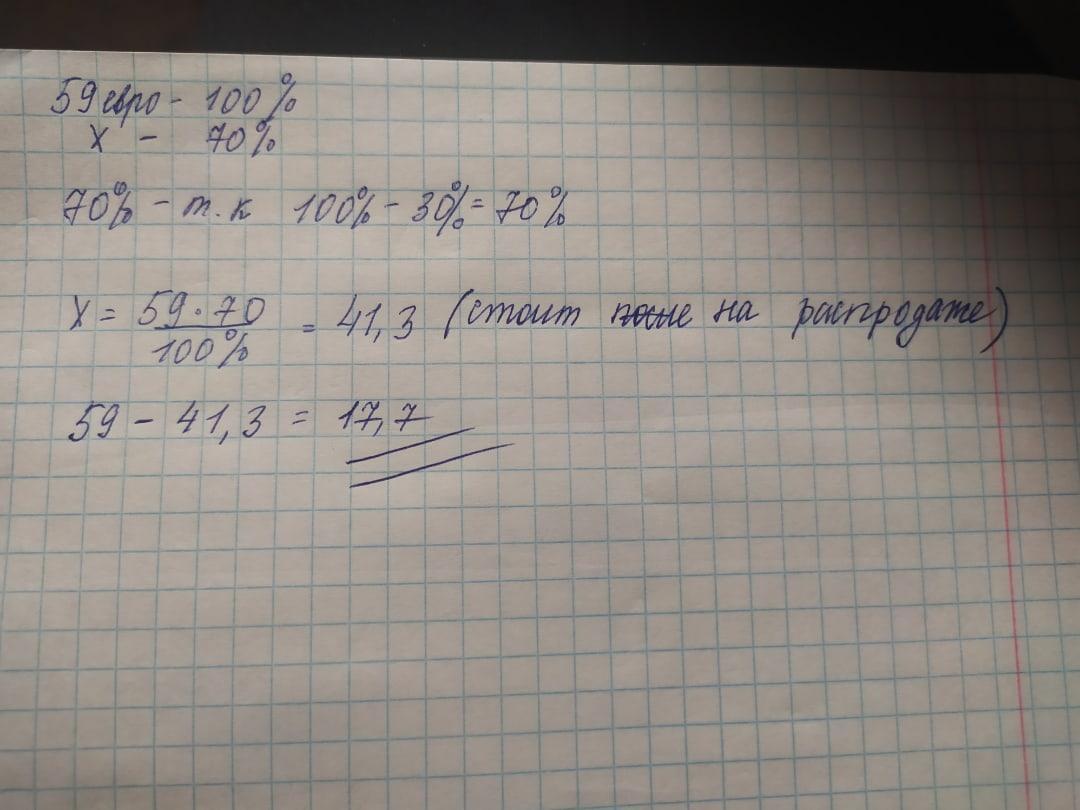 59 евро - 100%
х - 70%
70% - т.к 100% - 30% = 70%
х = 59·70 / 100% = 41,3 (стоит после на распродаже)
59 - 41,3 = 17,7